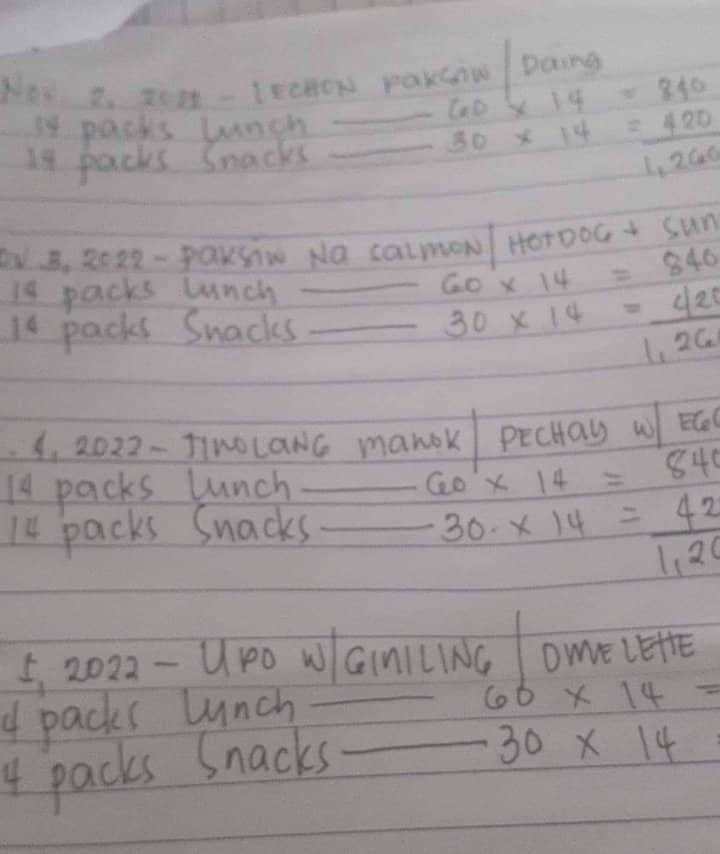 Nov 2, 2022 - LECHON PAKSIW / Daing
14 packs Lunch — 60 x 14 = 840
14 packs Snacks — 30 x 14 = 420
1,260
ov 3, 2022 - PAKSIW NA SALMON / HOTDOG + SUN
14 packs Lunch — 60 x 14 = 840
14 packs Snacks — 30 x 14 = 420
1,260
. 4, 2022 - TINOLANG manok / PECHAY w/ EGG
14 packs Lunch — 60 x 14 = 840
14 packs Snacks — 30. x 14 = 42
1,26
5, 2022 - UPO W/ GINILING / OMELETTE
4 packs Lunch — 60 x 14 =
4 packs Snacks — 30 x 14